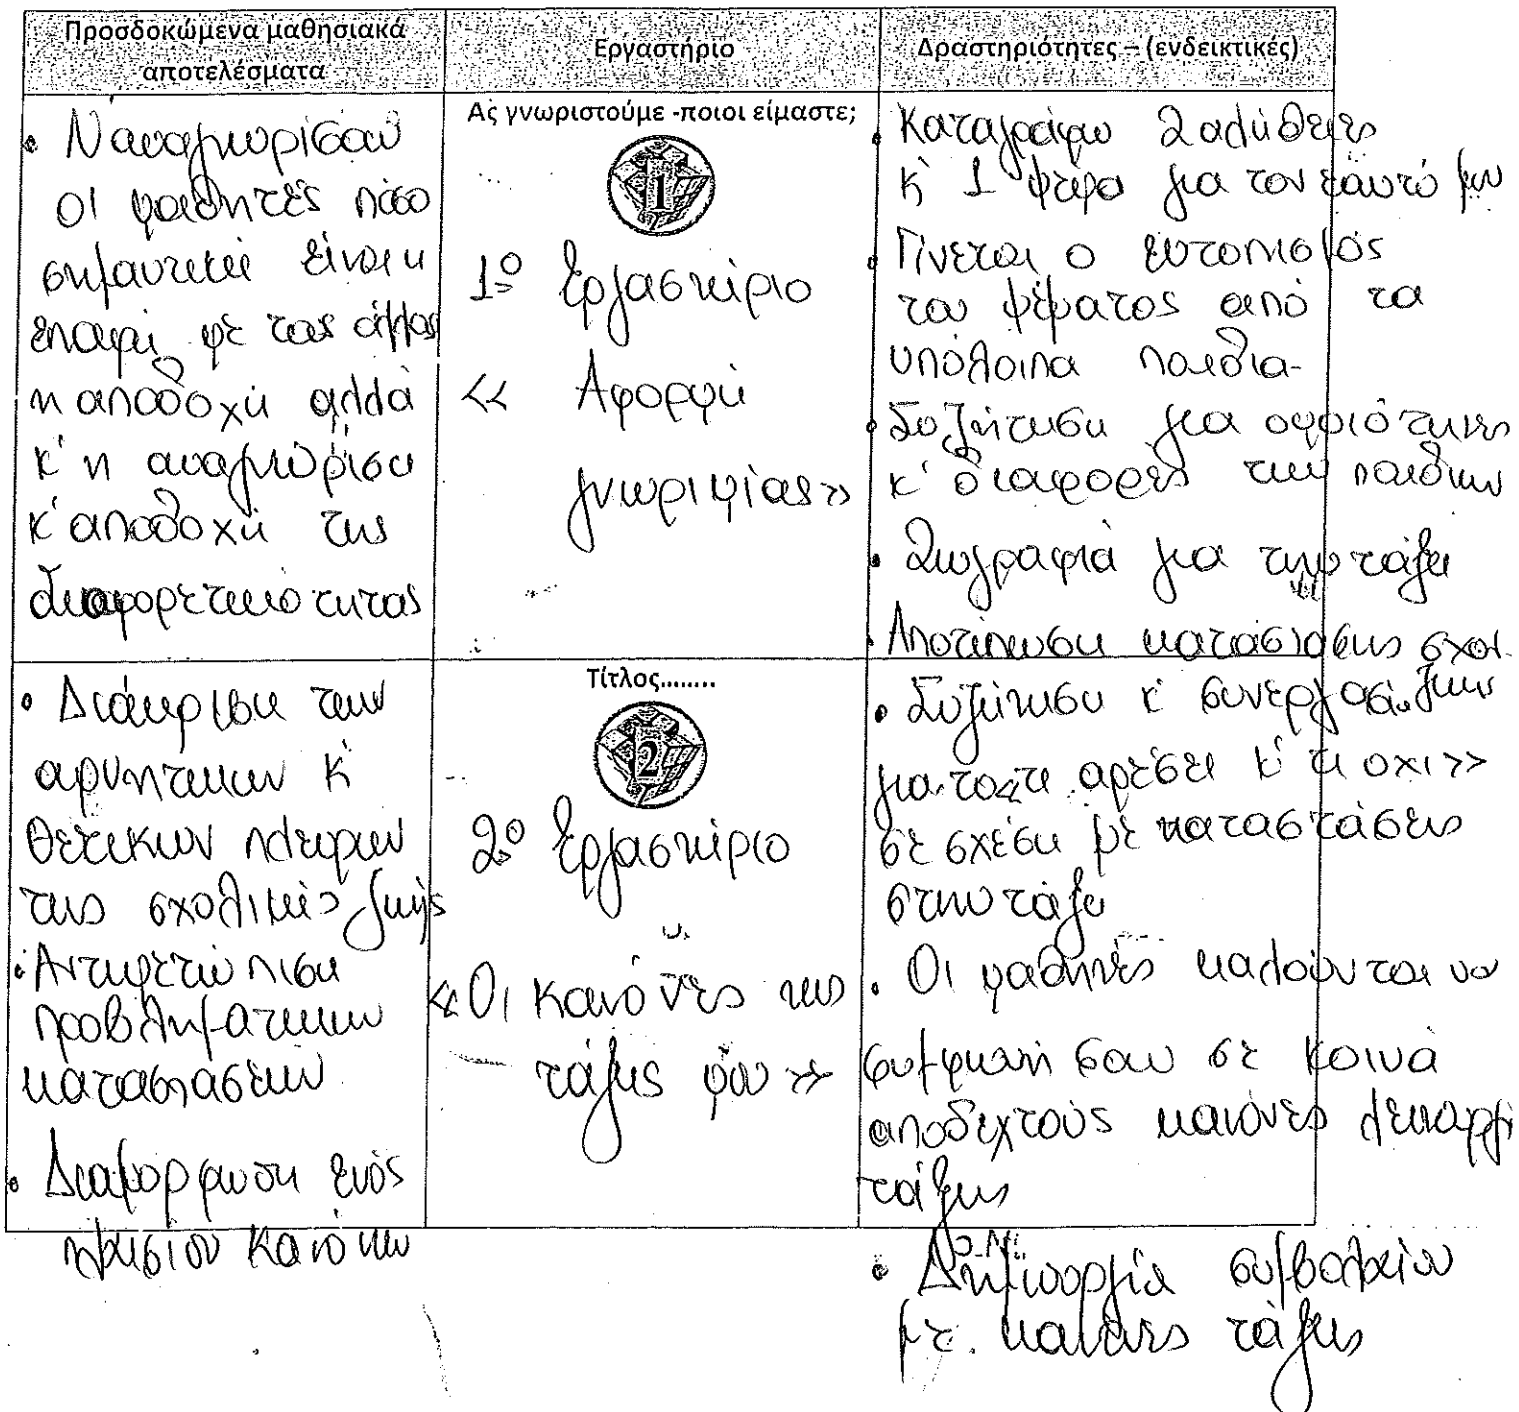 Προσδοκώμενα μαθησιακά
αποτελέσματα
Εργαστήριο
Δραστηριότητες – (ενδεικτικές)
• Ν αναγνωρίσουν
οι μαθητές πόσο
σημαντική είναι η
επαφή με τους άλλους
η αποδοχή αλλά
κ' η αναγνώριση
κ' αποδοχή της
διαφορετικότητας
Ας γνωριστούμε -ποιοι είμαστε;
1
1º Εργαστήριο
<< Αφορμή
γνωριμίας >>
• Καταγράφω 2 αλήθειες
κ' 1 ψέμα για τον εαυτό μου
• Γίνεται ο εντοπισμός
του ψέματος από τα
υπόλοιπα παιδιά-
• Συζήτηση για ομοιότητες
κ' διαφορές των παιδιών
• Ζωγραφιά για την τάξη
• Αποτύπωση κατάστασης σχολ.
ζωής
• Διάκριση των
αρνητικών κ'
θετικών πλευρών
της σχολικής ζωής
• Αντιμετώπιση
προβληματικών
καταστάσεων
• Διαμόρφωση ενός
πλαισίου κανόνων
Τίτλος........
2
2º Εργαστήριο
<< Οι κανόνες της
τάξης μου >>
• Συζήτηση κ' συνεργασία
για το << τι αρέσει κ' τι όχι >>
σε σχέση με καταστάσεις
στην τάξη
• Οι μαθητές καλούνται να
συμφωνήσουν σε κοινά
αποδεχτούς κανόνες
τάξης
• Δημιουργία συμβολαίου
με κανόνες τάξης